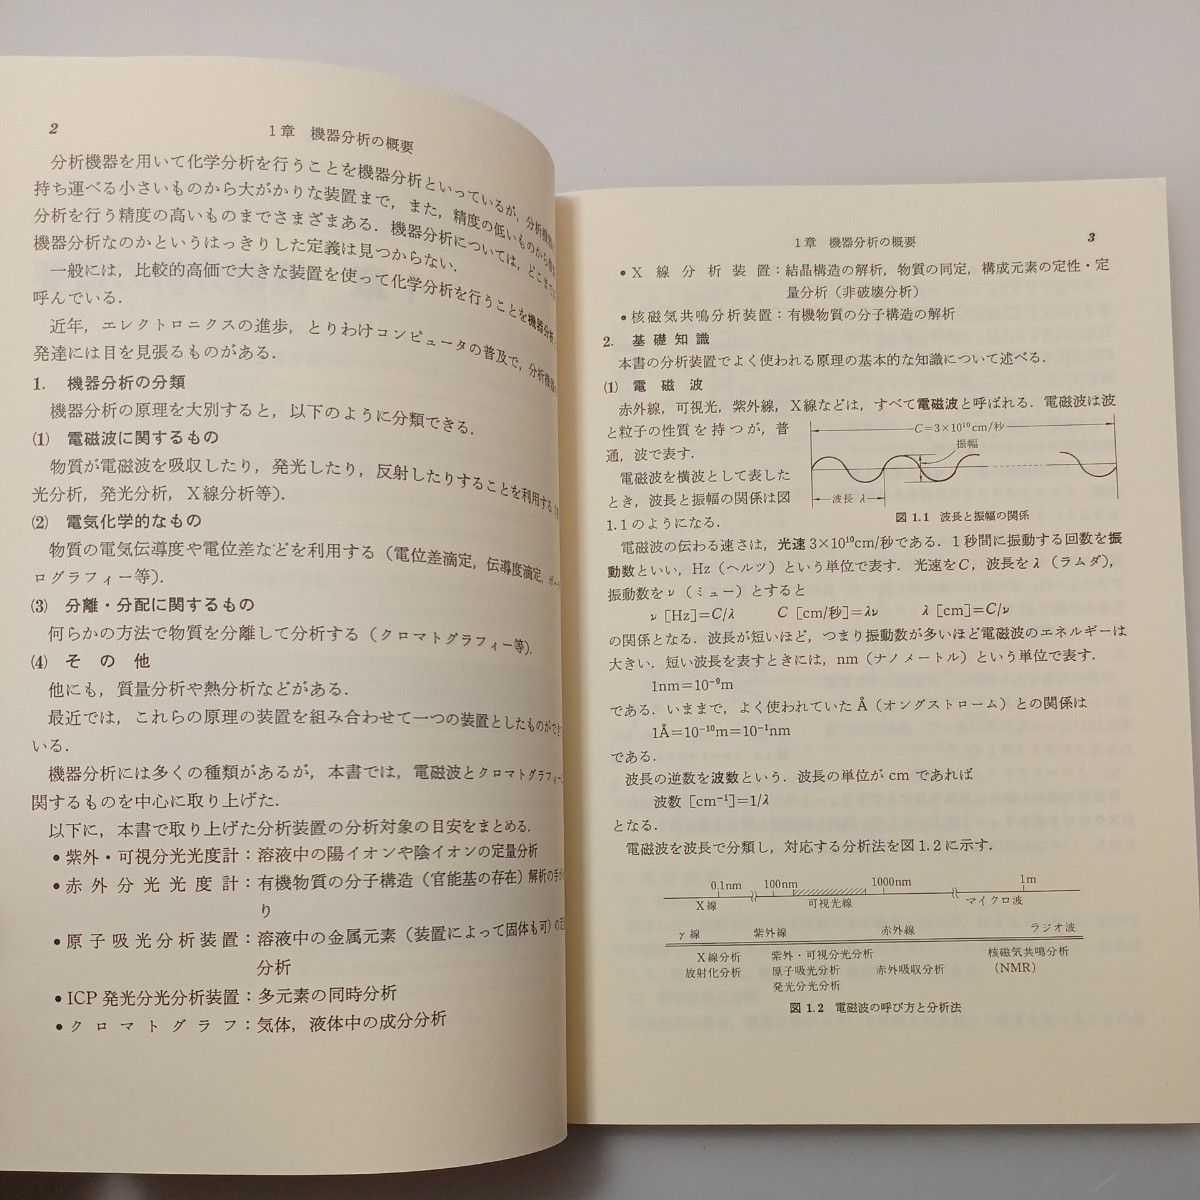 2
1章 機器分析の概要
分析機器を用いて化学分析を行うことを機器分析といっているが，分析機器
持ち運べる小さいものから大がかりな装置まで，また，精度の低いものから
分析を行う精度の高いものまでさまざまある．機器分析については，どこまで
機器分析なのかというはっきりした定義は見つからない．
一般には，比較的高価で大きな装置を使って化学分析を行うことを機器分析
呼んでいる．
近年，エレクトロニクスの進歩，とりわけコンピュータの普及で，分析機器
発達には目を見張るものがある．
1. 機器分析の分類
機器分析の原理を大別すると，以下のように分類できる．
(1) 電磁波に関するもの
物質が電磁波を吸収したり，発光したり，反射したりすることを利用する
光分析，発光分析，X線分析等)．
(2) 電気化学的なもの
物質の電気伝導度や電位差などを利用する（電位差滴定，伝導度滴定，ポー
ログラフィー等)．
(3) 分離・分配に関するもの
何らかの方法で物質を分離して分析する（クロマトグラフィー等)．
(4) その他
他にも，質量分析や熱分析などがある．
最近では，これらの原理の装置を組み合わせて一つの装置としたものができ
いる．
機器分析には多くの種類があるが，本書では，電磁波とクロマトグラフィー
関するものを中心に取り上げた．
以下に，本書で取り上げた分析装置の分析対象の目安をまとめる．
•紫外・可視分光光度計：溶液中の陽イオンや陰イオンの定量分析
•赤外分光光度計：有機物質の分子構造（官能基の存在）解析の手が
り
•原子吸光分析装置：溶液中の金属元素（装置によって固体も可）の定
分析
•ICP発光分光分析装置：多元素の同時分析
•クロマトグラフ：気体，液体中の成分分析
1章 機器分析の概要
3
•X線分析装置：結晶構造の解析，物質の同定，構成元素の定性・定
量分析（非破壊分析）
•核磁気共鳴分析装置：有機物質の分子構造の解析
2. 基礎知識
本書の分析装置でよく使われる原理の基本的な知識について述べる．
(1) 電磁波
赤外線，可視光，紫外線，X線などは，すべて電磁波と呼ばれる．電磁波は波
と粒子の性質を持つが，普
通，波で表す．
電磁波を横波として表した
とき，波長と振幅の関係は図
1.1のようになる．
C=3×10¹⁰cm/秒
振幅
波長 λ
図1.1 波長と振幅の関係
電磁波の伝わる速さは，光速3×10¹⁰cm/秒である．1秒間に振動する回数を振
動数といい，Hz（ヘルツ）という単位で表す．光速をC，波長をλ（ラムダ)，
振動数をν（ミュー）とすると
ν[Hz]=C/λ C[cm/秒]=λν λ[cm]=C/ν
の関係となる．波長が短いほど，つまり振動数が多いほど電磁波のエネルギーは
大きい．短い波長を表すときには，nm（ナノメートル）という単位で表す．
1nm=10⁻⁹m
である．いままで，よく使われていたÅ（オングストローム）との関係は
1Å=10⁻¹⁰m=10⁻¹nm
である．
波長の逆数を波数という．波長の単位がcmであれば
波数[cm⁻¹]=1/λ
となる．
電磁波を波長で分類し，対応する分析法を図1.2に示す．
0.1nm 100nm 1000nm 1m
X線 可視光線 マイクロ波
γ線 紫外線 赤外線 ラジオ波
X線分析 紫外・可視分光分析 核磁気共鳴分析
放射化分析 原子吸光分析 赤外吸収分析 (NMR)
発光分光分析
図1.2 電磁波の呼び方と分析法